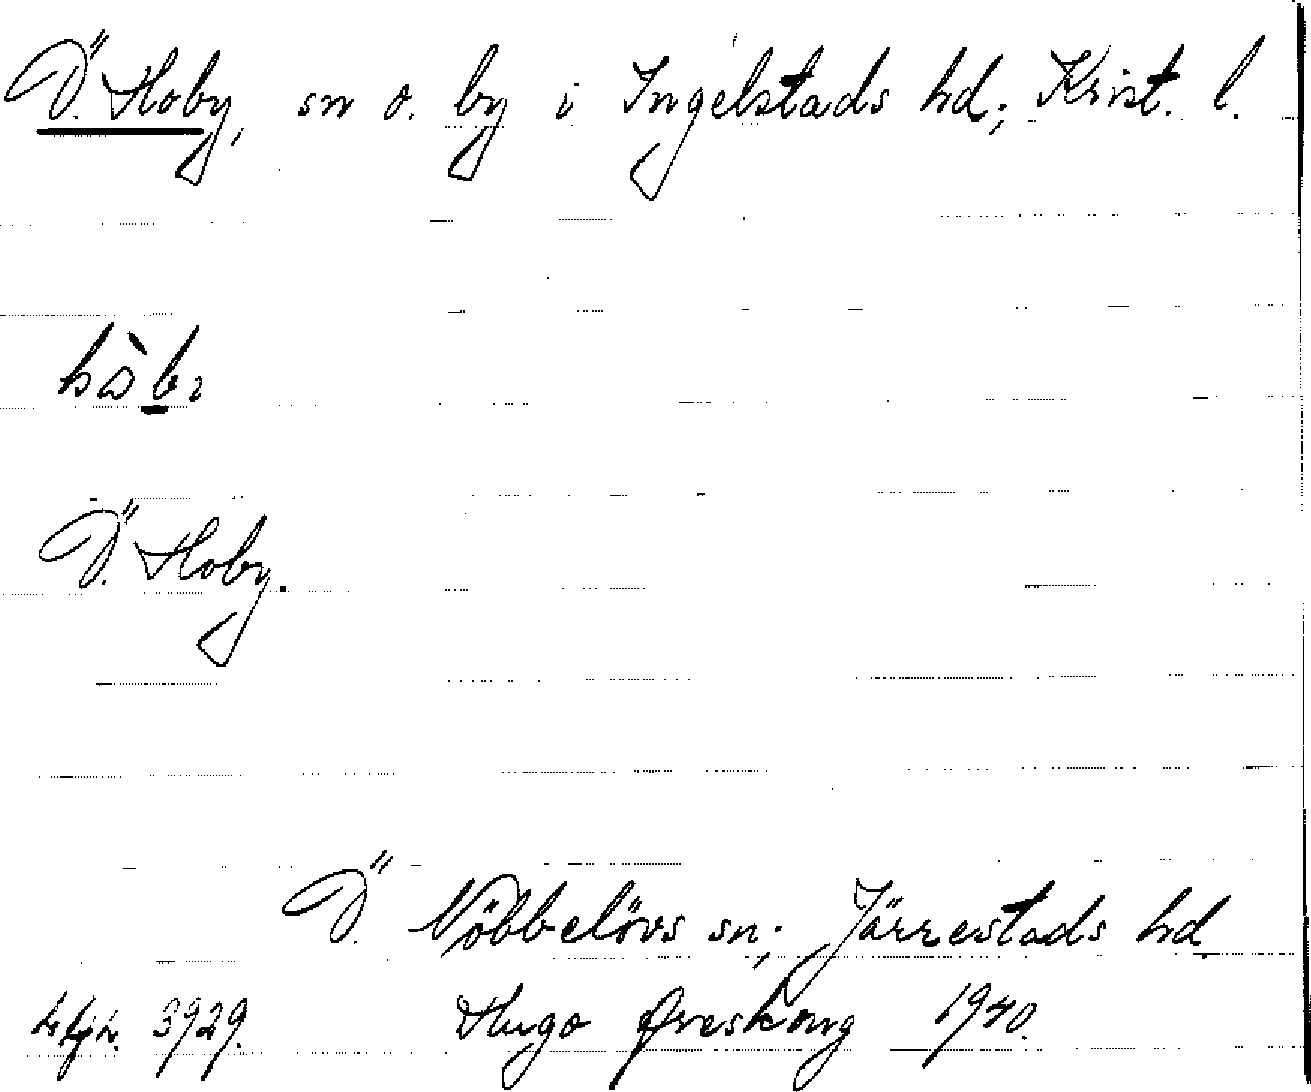 Ö. Hoby, sn o. by i Ingelstads hd; Krist. l.
Ö. Hoby.
Ö. Nöbbelövs sn; Järrestads hd
3929. Hugo Areskoug 1940.